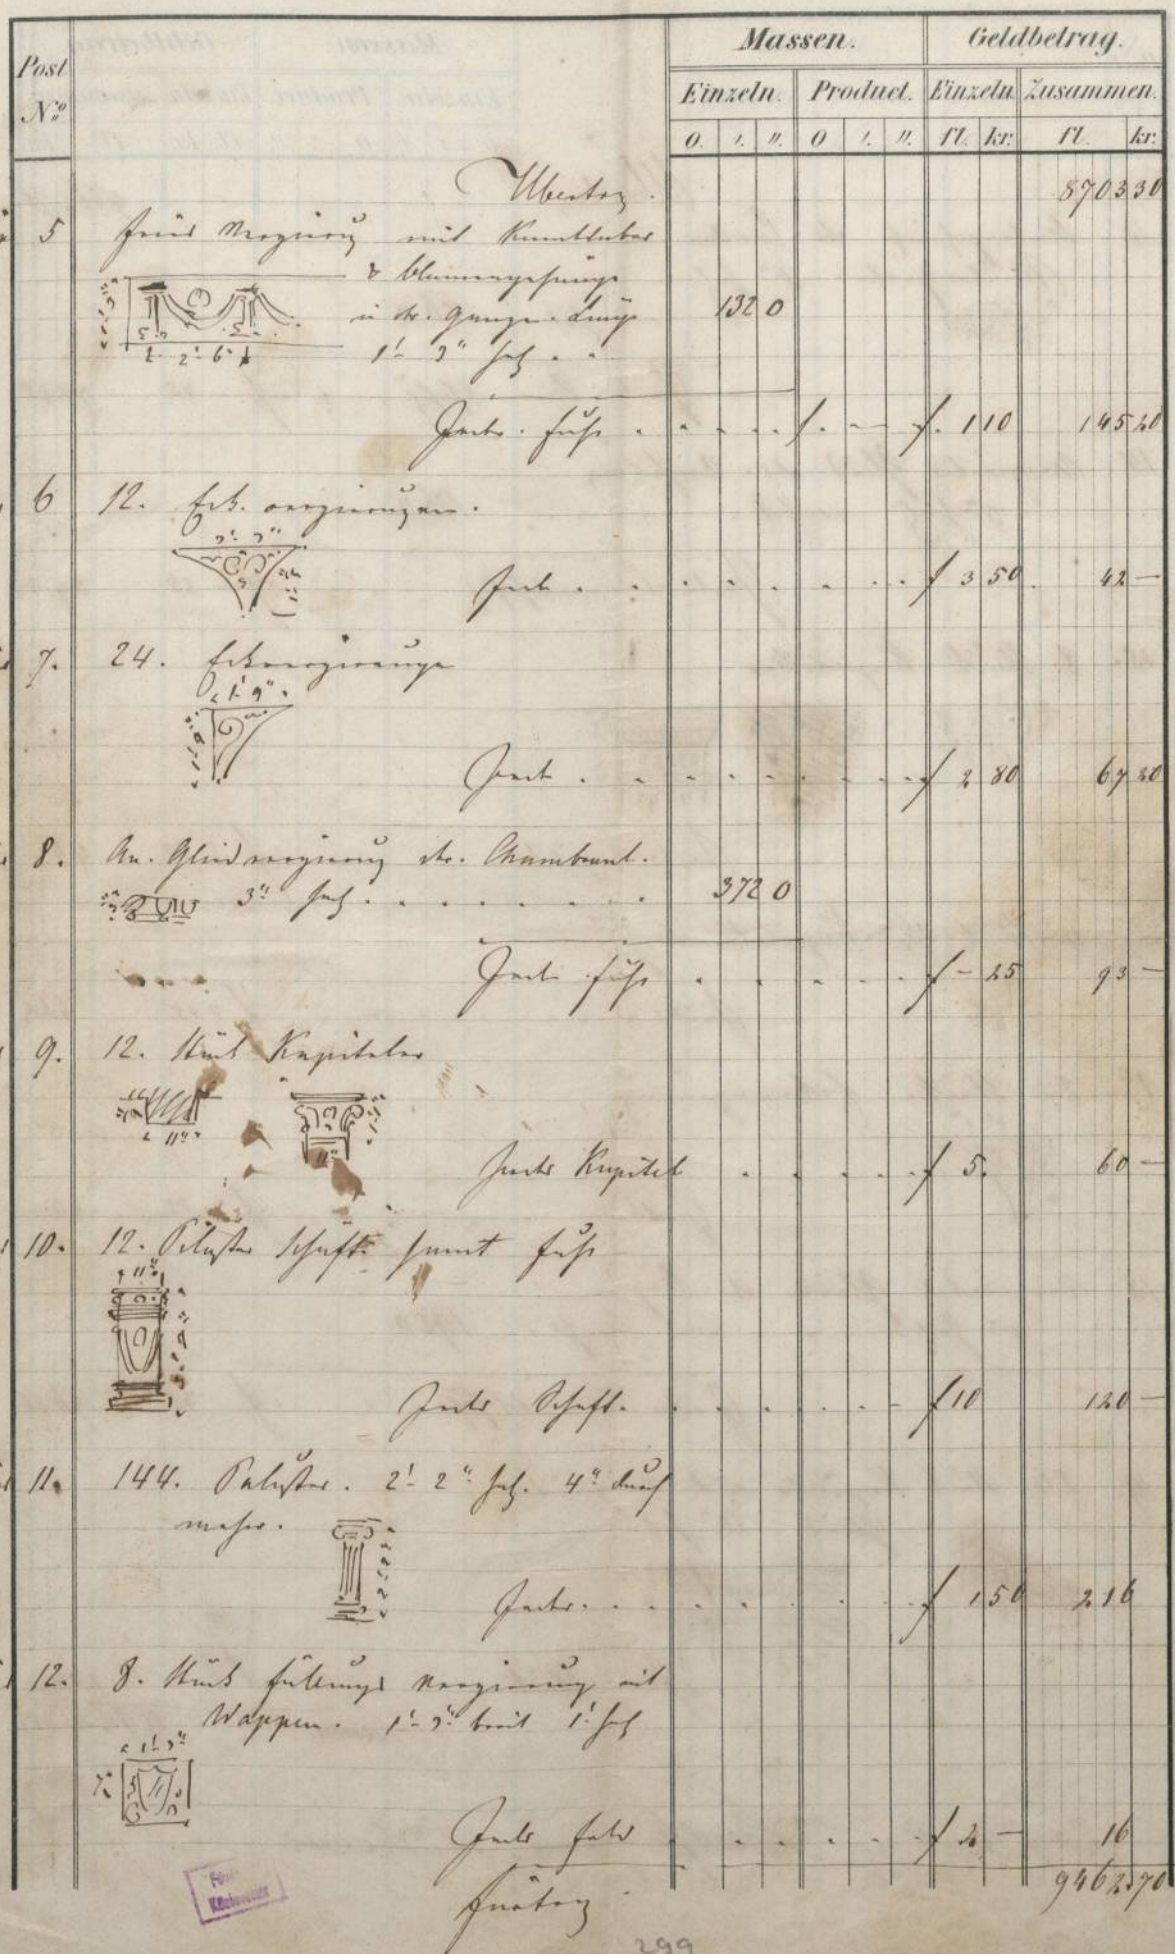 Massen. Geldbetrag.
Post No
Einzeln. Product. Einzeln. Zusammen.
0. ı. ıı. 0 ı. ıı. fl. kr. fl. kr.
Übertrag. 8703 30
5 Fries Verzierung mit Kandelaber
& Blumengehänge
in der ganzen Länge 132 0
1' 3" hoch . .
2' 6"
Jeder Fuß . f. 1 10 145 20
6 12. Eck verzierungen.
Jede . . f 3 50 42 —
7. 24. Eckverzierungen
1' 9"
Jede . f 2 80 67 20
8. An. Gliedverzierung
3" hoch . . . 372 0
Jeder Fuß f – 25 93 —
9. 12. Stück Kapitäler
11"
11"
Jedes Kapitel . f 5. 60 —
10. 12. Pilaster Schäfte sammt Fuß
11"
Jeder Schaft. f 10 120 —
11. 144. Baluster. 2' 2" hoch. 4" durch
messer.
Jeder. . . f 1 50 216
12. 8. Stück Füllungs Verzierung mit
Wappen. 1' 3" breit 1' hoch
1' 3"
Jedes Feld f 2 — 16
Fürtrag 9462 70
299